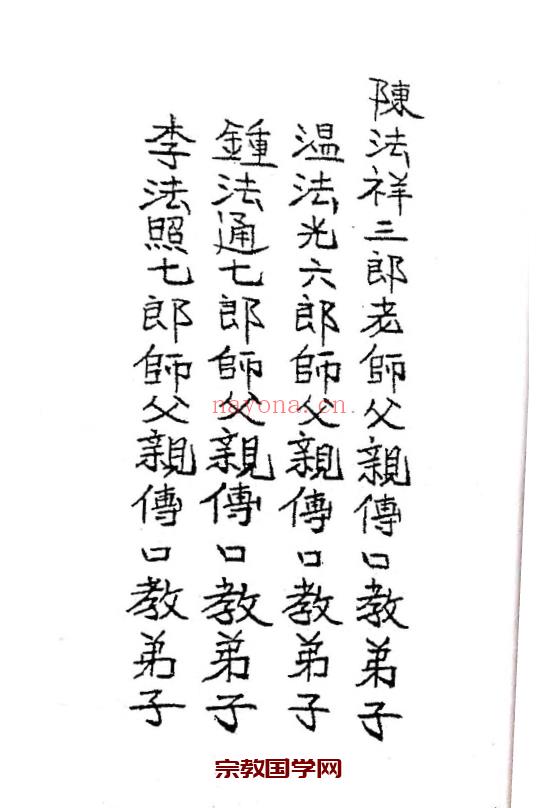 陳法祥三郎老師父親傳口教弟子
温法光六郎師父親傳口教弟子
鍾法通七郎師父親傳口教弟子
李法照七郎師父親傳口教弟子
nayona.cn
宗教国学网